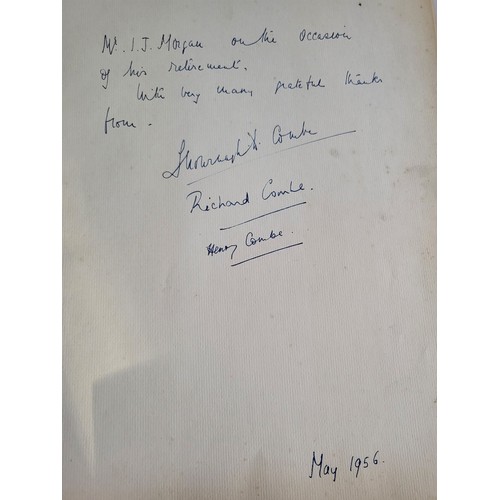 Mr. I.J. Morgan on the occasion
of his retirement.
With very many grateful thanks
from.
Combe
Richard Combe.
Henry Combe.
May 1956.